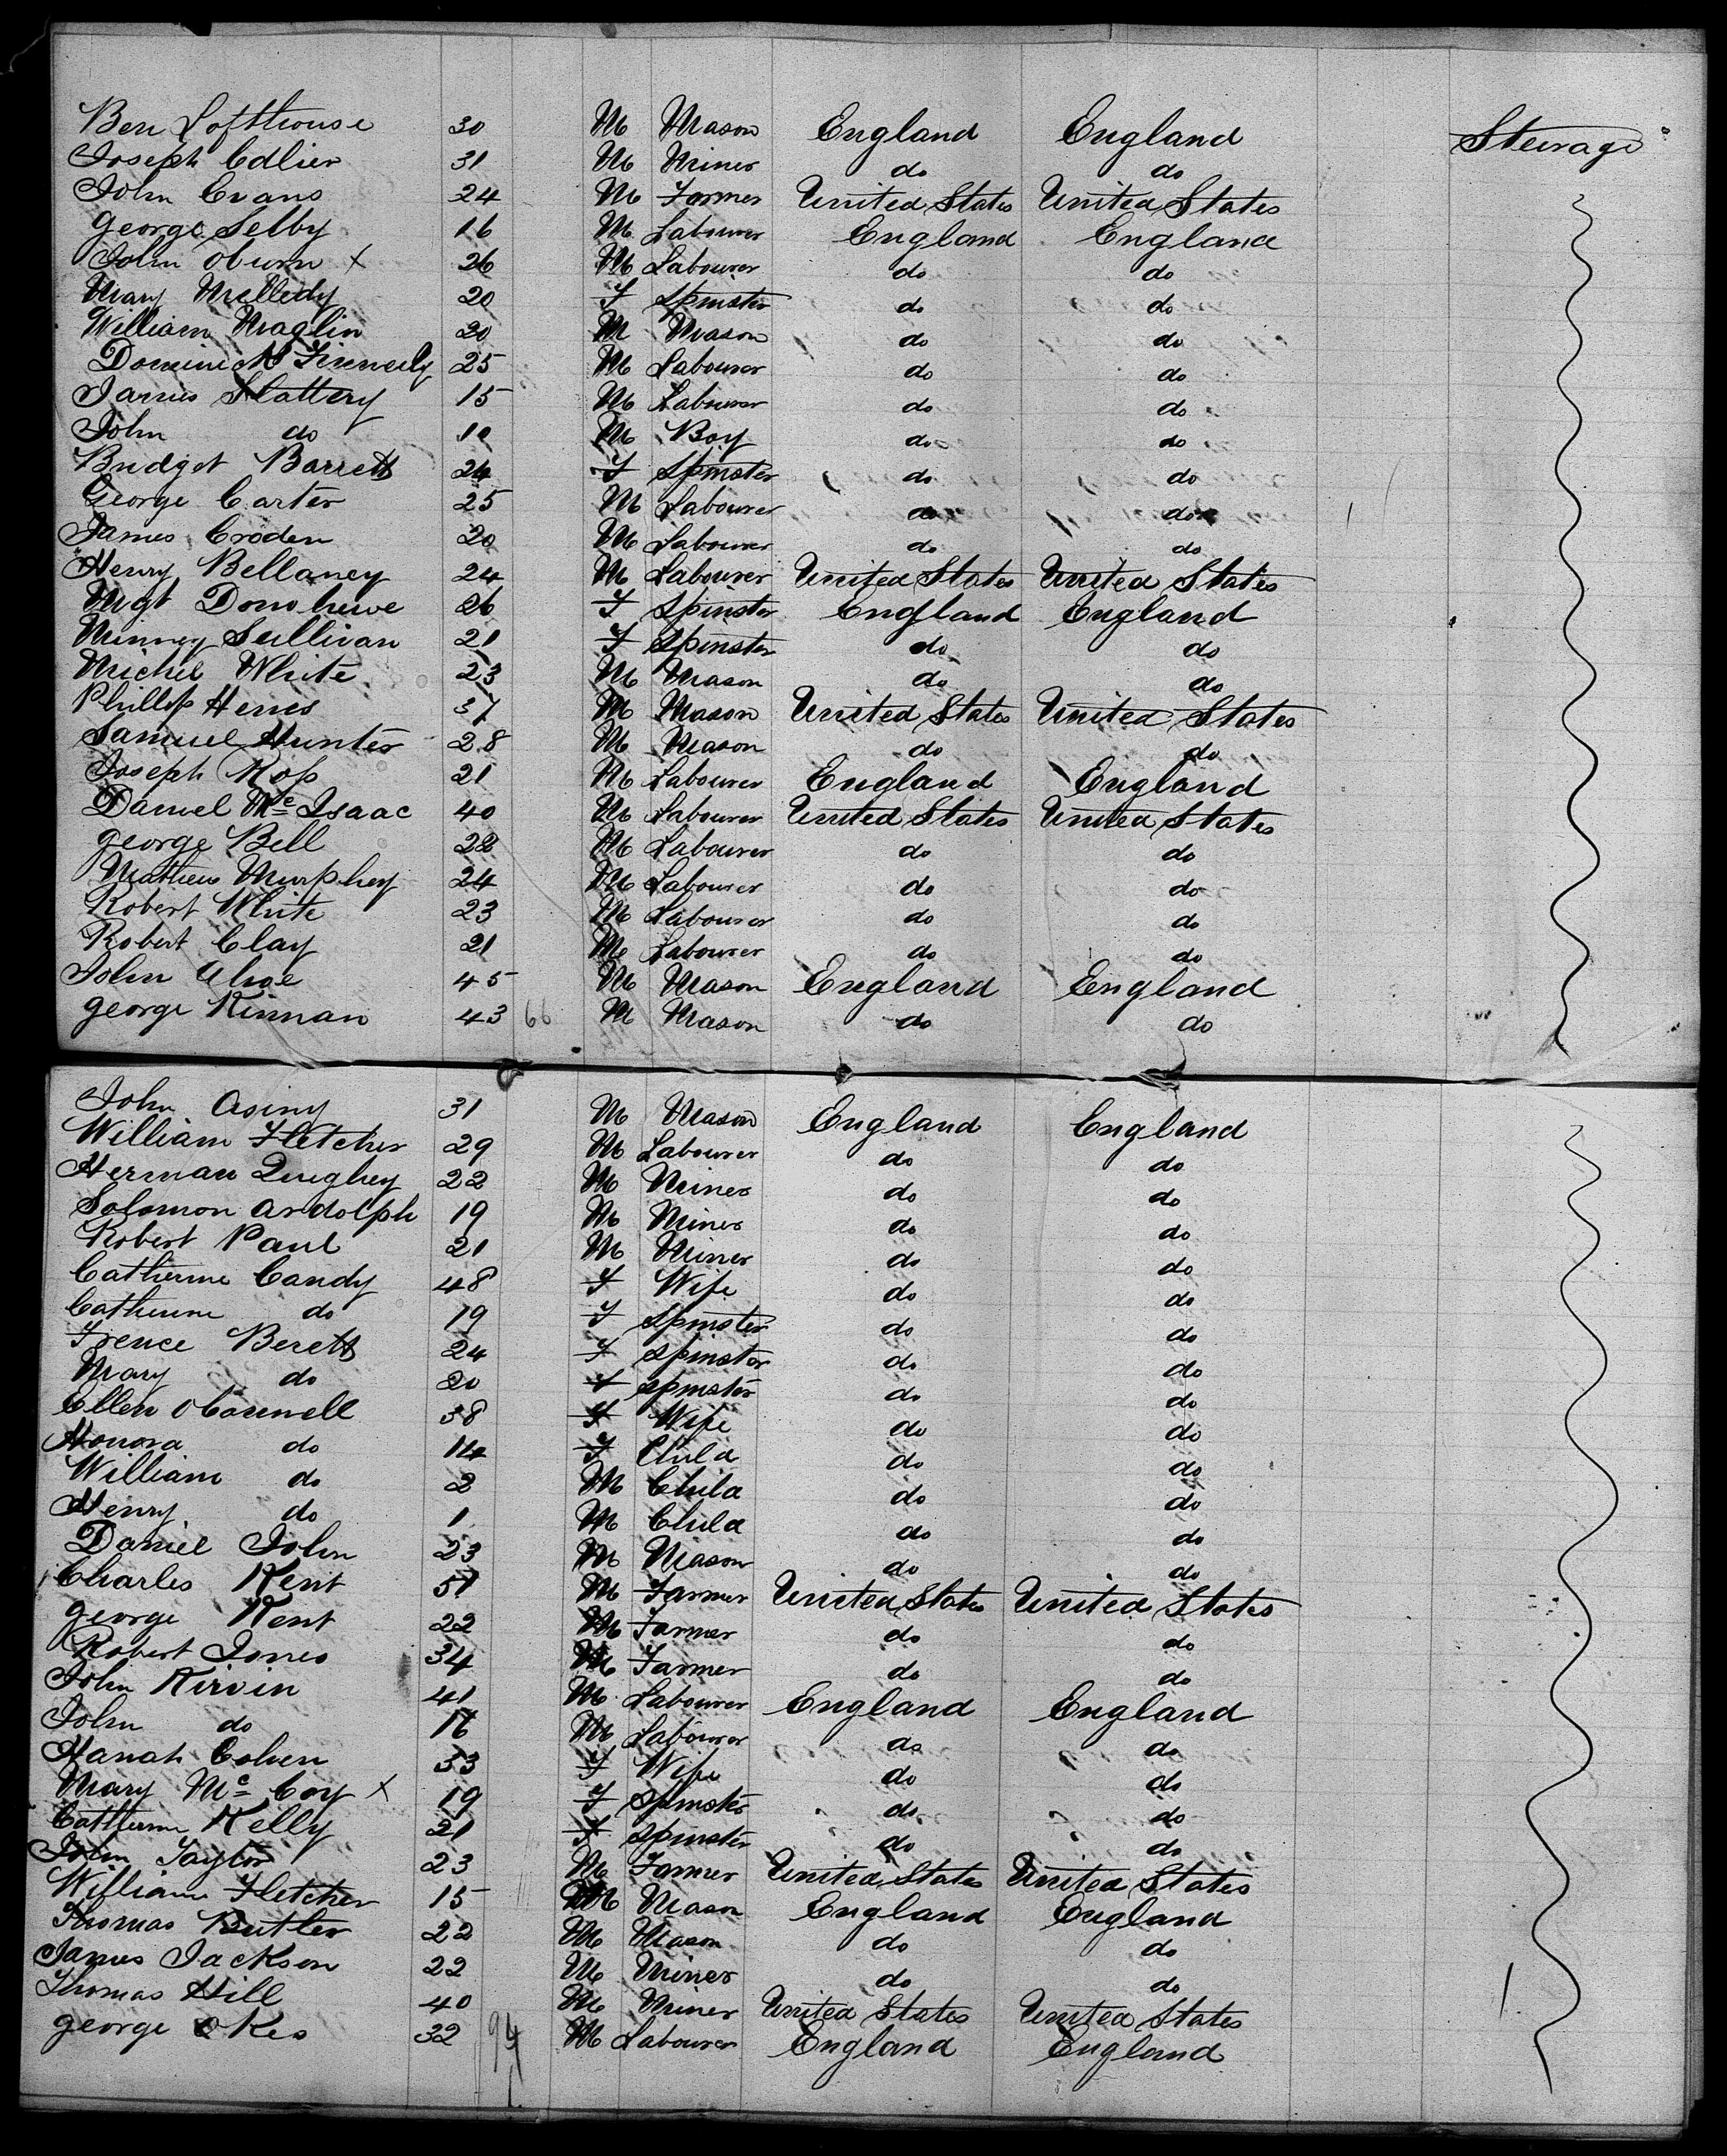 Ben Lofthouse 30 M Mason England England Steerage
Joseph Collier 31 M Miner do do
John Evans 24 M Farmer United States United States
George Selby 16 M Labourer England England
John Oburn x 26 M Labourer do do
Mary Melledy 20 F Spinster do do
William Maglin 20 M Mason do do
25 M Labourer do do
James Slattery 15 M Labourer do do
John do 10 M Boy do do
Bridget Barrett 24 F Spinster do do
George Carter 25 M Labourer do do
James Croden 20 M Labourer do do
Henry Bellaney 24 M Labourer United States United States
Mgt Donohuwe 26 F Spinster England England
Minney Sullivan 21 F Spinster do do
Michel White 23 M Mason do do
Phillip 37 M Mason United States United States
Samuel Hunter 28 M Mason do do
Joseph Ross 21 M Labourer England England
Daniel Mc Isaac 40 M Labourer United States United States
George Bell 28 M Labourer do do
Mathew Murphey 24 M Labourer do do
Robert White 23 M Labourer do do
Robert Clay 21 M Labourer do do
John 45 M Mason England England
George Kinnan 43 66 M Mason do do
John Asiny 31 M Mason England England
William Fletcher 29 M Labourer do do
Herman Quighey 22 M Miner do do
Solomon Ardolph 19 M Miner do do
Robert Paul 21 M Miner do do
Catherine Candy 48 F Wife do do
Catherine do 19 F Spinster do do
Frence Berett 24 F Spinster do do
Mary do 20 F Spinster do do
Ellen OConnell 38 F Wife do do
Honora do 14 F Child do do
William do 2 M Child do do
Henry do 1 M Child do do
Daniel John 23 M Mason do do
Charles Kent 51 M Farmer United States United States
George Kent 22 M Farmer do do
Robert Jones 34 M Farmer do do
John Kirvin 41 M Labourer England England
John do 16 M Labourer do do
Hanah Cohen 33 F Wife do do
Mary Mc Coy x 19 F Spinster do do
Catherine Kelly 21 F Spinster do do
John Taylor 23 M Farmer United States United States
William Fletcher 15 M Mason England England
Thomas Butler 22 M Mason do do
James Jackson 22 M Miner do do
Thomas Hill 40 M Miner United States United States
George Okes 32 94 M Labourer England England